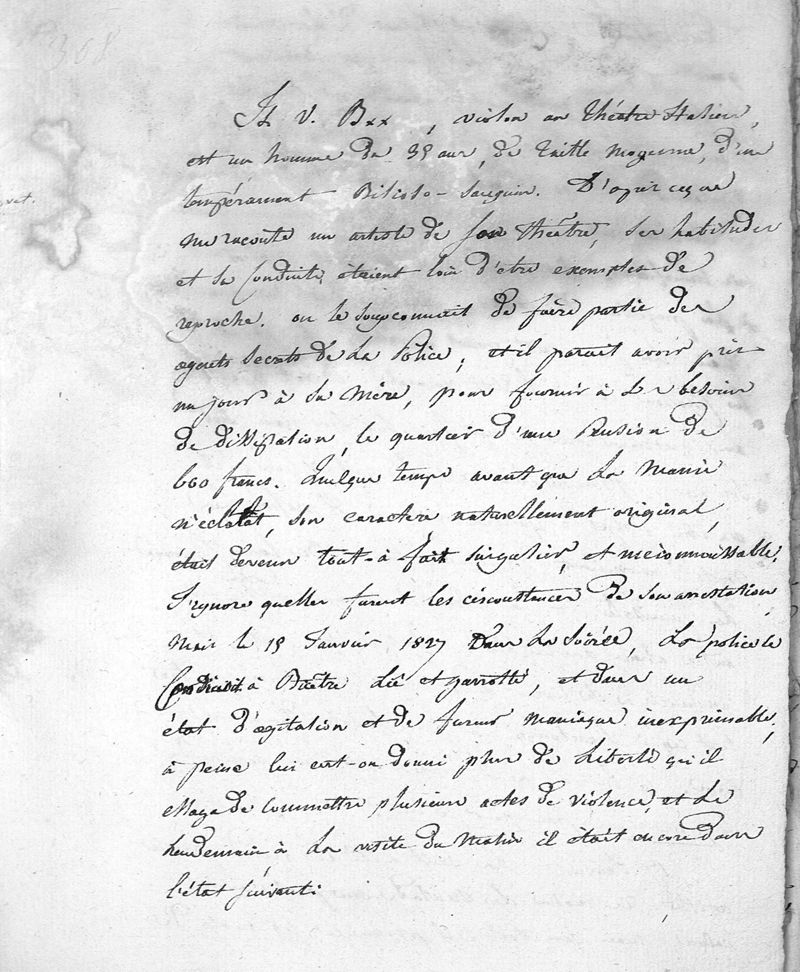 308
V. Bxx, violon au théâtre Italien,
est un homme de 35 ans, de taille moyenne, d'un
tempérament Bilioso-sanguin. D'après ce que
me raconte un artiste de son théâtre, ses habitudes
et sa conduite étaient loin d'etre exemptes de
reproche. on le soupconnait de faire partie des
agents secrets de la Police, et il parait avoir pris
un jour à sa mère, pour fournir à ses besoins
de dissipation, le quartier d'une Pension de
600 francs. Quelque temps avant que la Manie
n'éclatat, son caractere naturellement original,
était devenu tout-à fait singulier, et méconnoissable.
J'ignore quelles furent les circonstances de son arrestation,
Mais le 15 Janvier 1827 Dans la Soirée, la police le
Conduisit à Bicêtre lié et garrotté, et dans un
état d'agitation et de fureur maniaque inexprimable.
à peine lui eut-on donné plus de liberté qu'il
essaya de commettre plusieurs actes de violence, et le
lendemain à la visite du matin il était encore dans
l'état suivant: